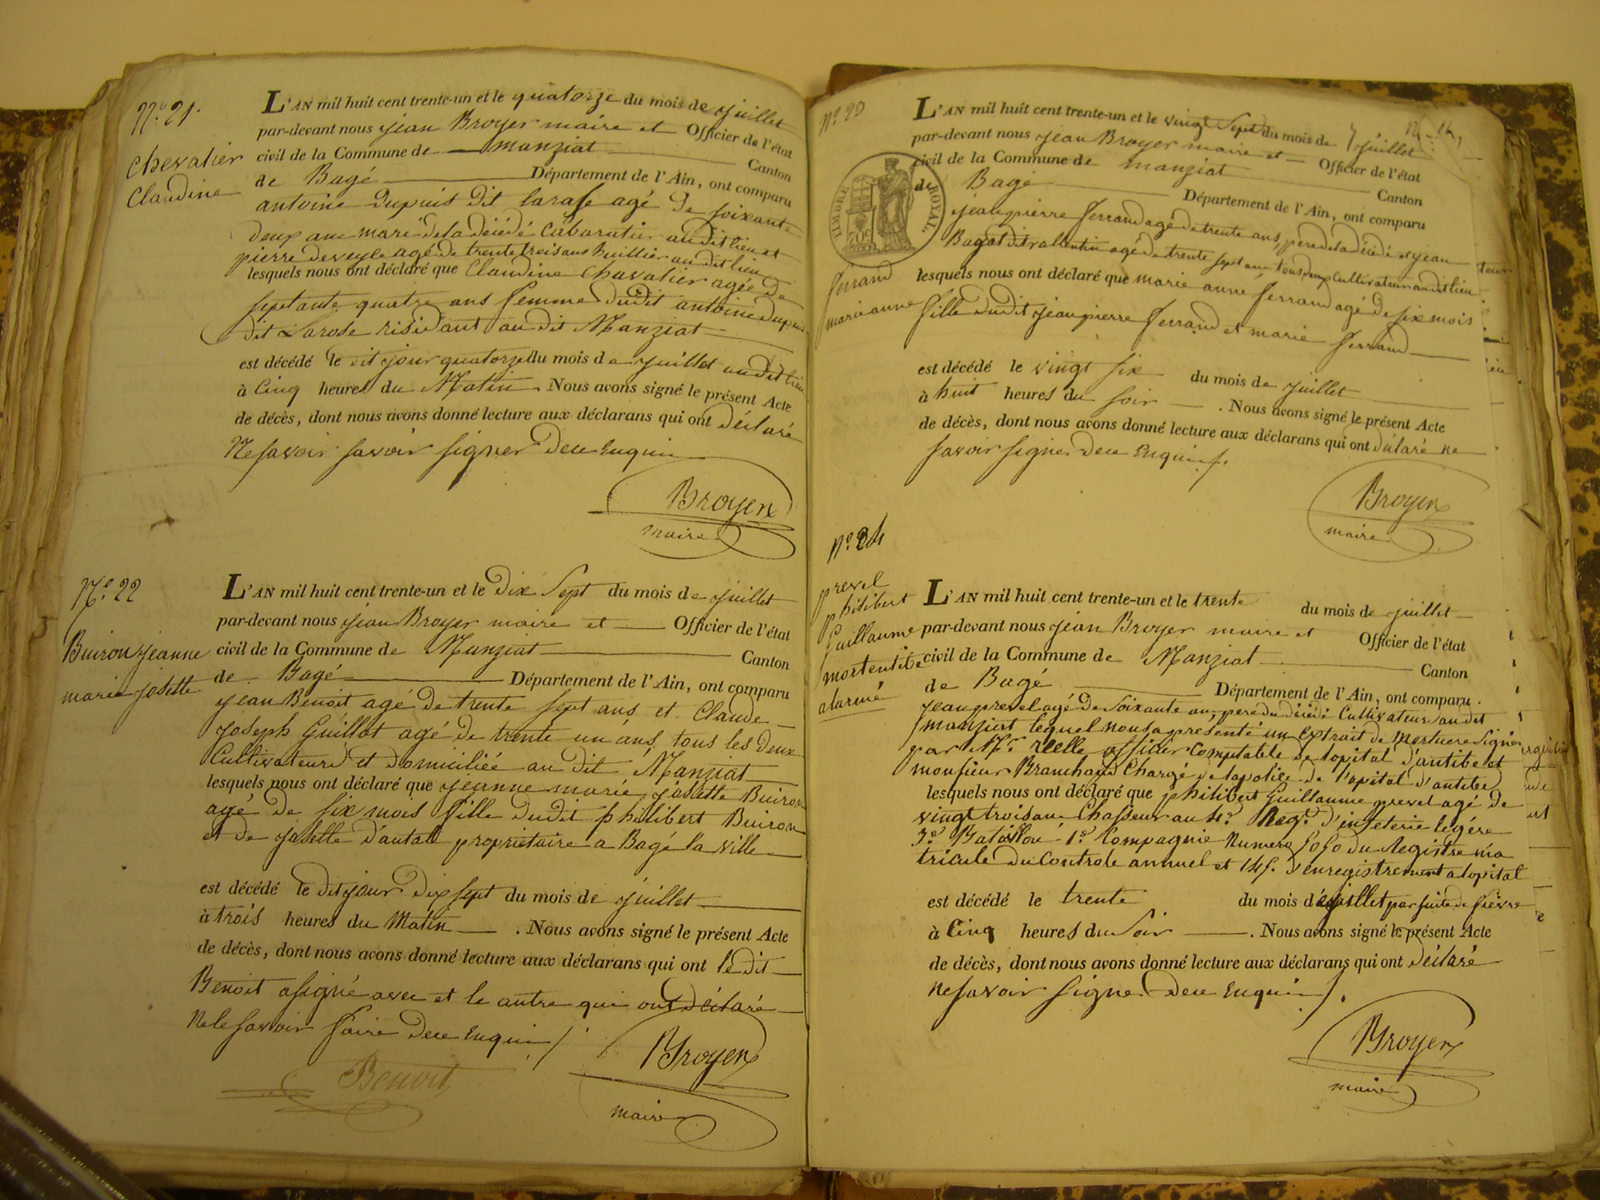 N.º 21.
Chevalier
Claudine
L'AN mil huit cent trente-un et le quatorze du mois de juillet
par-devant nous jean Broyer maire et Officier de l'état
civil de la Commune de manziat Canton
de Bagé Département de l'Ain, ont comparu
antoine Dupuit Dit larose agé De soixante
Deux ans mari de la décédé Cabaratier au dit lieu et
pierre deveyle agé de trente trois ans huillier au dit lieu
lesquels nous ont déclaré que Claudine Chavalier agée De
septante quatre ans femme Dudit antoine Dupuit
dit Larose residant au dit Manziat
est décédé le dit jour quatorze du mois de juillet au dit lieu
à Cinq heures du Matin. Nous avons signé le présent Acte
de décès, dont nous avons donné lecture aux déclarans qui ont déclaré
Ne savoir savoir signer Dece Enquis
Broyer
maire
N.º 22
Buiron jeanne
marie josette
L'AN mil huit cent trente-un et le Dix Sept du mois de juillet
par-devant nous jean Broyer maire et Officier de l'état
civil de la Commune de Manziat Canton
de Bagé Département de l'Ain, ont comparu
jean Benoit agé de trente sept ans et Claude
joseph Guillot agé de trente un ans tous les Deux
Cultivateurs et domiciliée au dit Manziat
lesquels nous ont déclaré que jeanne marie josette Buiron
agé de six mois fille dudit philibert Buiron
et de josette D'autall propriétaire a Bagé la ville
est décédé le dit jour Dix sept du mois de juillet
à trois heures du Matin. Nous avons signé le présent Acte
de décès, dont nous avons donné lecture aux déclarans qui ont le dit
Benoit a signé avec et le autre qui ont déclaré
Ne le savoir faire Dece Enquis
Benoit
Broyer
maire
TIMBRE ROYAL
ferrand
marie anne
L'AN mil huit cent trente-un et le vingt Sept du mois de juillet
par-devant nous jean Broyer maire et Officier de l'état
civil de la Commune de manziat Canton
de Bagé Département de l'Ain, ont comparu
jean pierre ferrand agé de trente ans, pere de la décédé et jean
Bagat dit valentin agé de trente sept ans tous deux Cultivateur au dit lieu
lesquels nous ont déclaré que marie anne ferrand agé de six mois
fille du dit jean pierre ferrand et marie ferrand
est décédé le vingt six du mois de juillet
à huit heures du soir. Nous avons signé le présent Acte
de décès, dont nous avons donné lecture aux déclarans qui ont déclaré ne
savoir signer Dece Enquis
Broyer
maire
N.º 24
prevel
philibert
Guillaume
mort entibe
a larmé
L'AN mil huit cent trente-un et le trente du mois de juillet
par-devant nous jean Broyer maire et Officier de l'état
civil de la Commune de Manziat Canton
de Bagé Département de l'Ain, ont comparu.
jean prevel agé de soixante an, pere du décédé Cultivateur au dit
manziat lequel nous a presenté un Extrait de Mortuere Signé
par Mr. réelle officier Comptable de lopital D'antibe et
monsieur Branchard Chargé de la police de l'opital d'antibe
lesquels nous ont déclaré que philibert Guillaume prevel agé de
vingt trois an Chasseur au 4e. Reg. d'infeterie légére
3e. Batallou 1e. Compagnie Numero 5050 du Registre ma
tricule du Controle annuel et 145. d'enregistrement a lopital
est décédé le trente du mois de juillet par suite de fièvre
à Cinq heures du Soir. Nous avons signé le présent Acte
de décès, dont nous avons donné lecture aux déclarans qui ont déclaré
Ne savoir signe. Dece Enquis
Broyer
maire